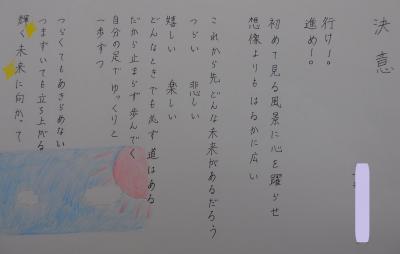 決意
行け!。
進め!。
初めて見る風景に心を躍らせ
想像よりもはるかに広い
これから先どんな未来があるだろう
つらい 悲しい
嬉しい 楽しい
どんなときでも必ず道はある
だから止まらず歩んでく
自分の足でゆっくりと
一歩ずつ
つらくてもあきらめない
つまずいても立ち上がる
輝く未来に向かって